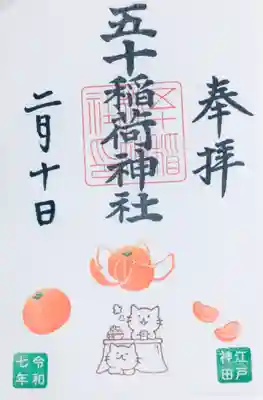 奉拝
五十稲荷神社
二月十日
江戸
神田
令和
七年